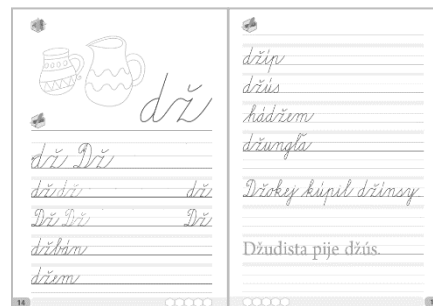 dž
dž Dž
dž dž dž
Dž Dž Dž
džbán
džem
14
džíp
džús
hádžem
džungľa
Džokej kúpil džínsy
Džudista pije džús.